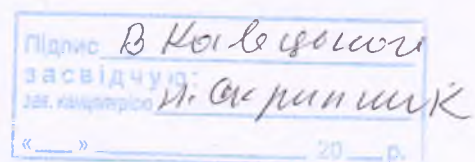 Підпис В Ковецької
засвідчую:
зав. канцелярією Н. Скрипник
« » 20 р.